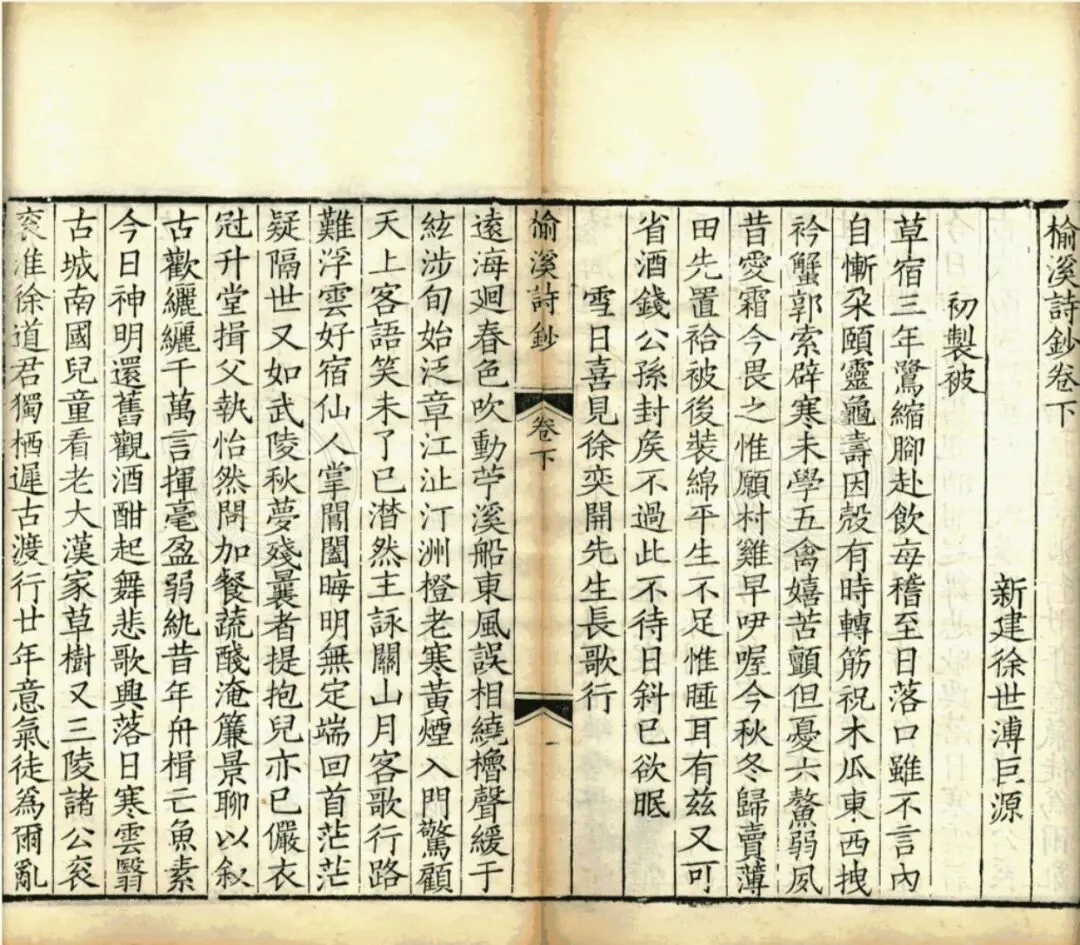 榆溪詩鈔卷下
新建徐世溥巨源
初製被
草宿三年鷺縮腳赴飲每稽至日落口雖不言內
自慚朶頤靈龜壽因殻有時轉筋祝木瓜東西拽
衿蟹郭索辟寒未學五禽嬉苦顫但憂六鰲弱夙
昔愛霜今畏之惟願村雞早咿喔今秋冬歸賣薄
田先置袷被後裝綿平生不足惟睡耳有兹又可
省酒錢公孫封矦不過此不待日斜已欲眠
雪日喜見徐奕開先生長歌行
榆溪詩鈔
卷下
一
遠海迴春色吹動苧溪船東風誤相繞櫓聲緩于
絃涉旬始泛章江沚汀洲橙老寒黃煙入門驚顧
天上客語笑未了已潜然主詠關山月客歌行路
難浮雲好宿仙人掌闔闔晦明無定端回首茫茫
疑隔世又如武陵秋夢殘曩者提抱兒亦已儼衣
冠升堂揖父執怡然問加餐蔬醆淹簾景聊以叙
古歡纚纚千萬言揮毫盈弱紈昔年舟楫亡魚素
今日神明還舊觀酒酣起舞悲歌興落日寒雲翳
古城南國兒童看老大漢家草樹又三陵諸公衮
衮淮徐道君獨栖遲古渡行廿年意氣徒爲爾亂